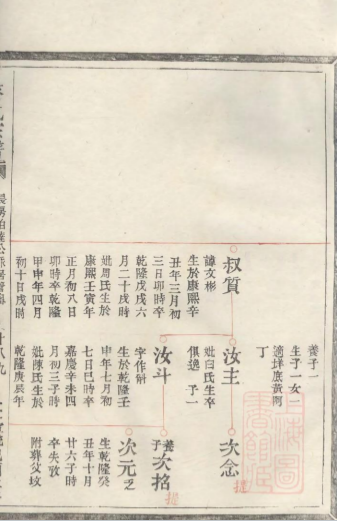 養子一
生子一女二
適垟底黃
丁
叔質
諱文彬
生於康熙辛
丑年三月初
三日卯時卒
乾隆戊戌六
月二十戌時
妣周氏生於
康熙壬寅年
正月初八日
卯時卒乾隆
甲申年四月
初十日戌時
汝主
妣白氏生卒
俱逸 子一
汝斗
字作斛
生於乾隆壬
申年七月初
七日巳時卒
嘉慶辛未四
月初三子時
妣陳氏生於
乾隆庚辰年
次念
提
養子
次格
提
次元之
生乾隆癸
丑年十月
廿六子時
卒失攷
附葬父墳
上海圖
書館